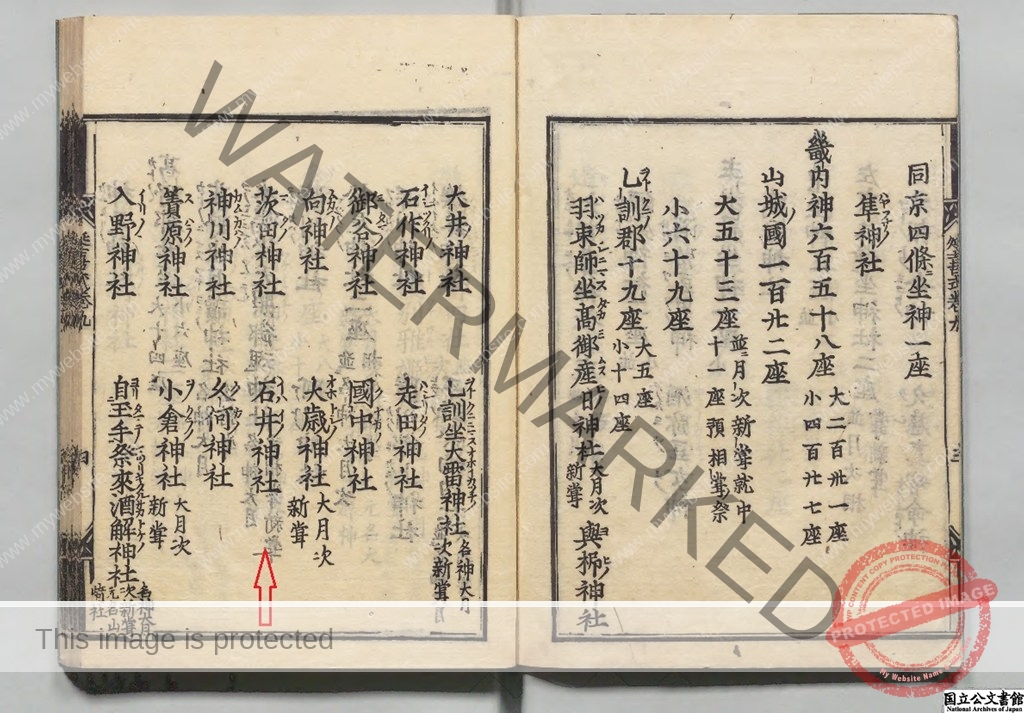 同京四條坐神一座
隼神社
畿内神六百五十八座 大二百卅一座 小四百廿七座
山城國一百廿二座
大五十三座 並月次新嘗就中十一座預相嘗祭
小六十九座
乙訓郡十九座 大五座 小十四座
羽束師坐高御産日神社 大月次新嘗 與杼神社
大井神社 乙訓坐大雷神社 名神大月次新嘗
石作神社 走田神社
御谷神社 國中神社
向神社 大歳神社 大月次新嘗
茨田神社 石井神社
神川神社 久何神社
簀原神社 小倉神社 大月次新嘗
入野神社 自玉手祭來酒解神社
WATERMARKED
This image is protected
COPYRIGHT PROTECTED
PROTECTED IMAGE
My Website Name
www.mywebsite.com
国立公文書館
National Archives of Japan